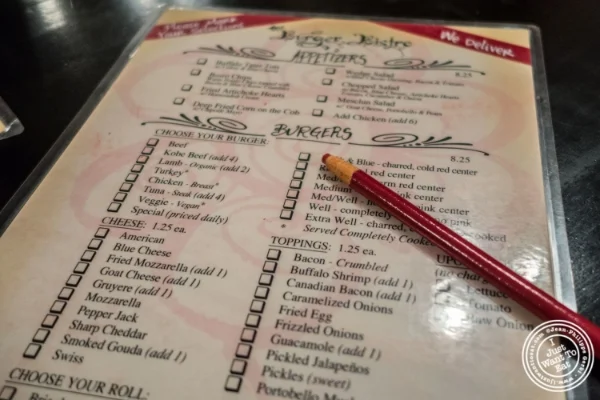 Please Mark
Your Selection!
We Deliver
Burger Bistro
APPETIZERS
Buffalo
Wedge Salad 8.25
Chopped Salad
Fried Artichoke Hearts
Mexican Salad
Deep Fried Corn on the Cob
Add Chicken (add 6)
BURGERS
CHOOSE YOUR BURGER: 8.25
Beef
Kobe Beef (add 4)
Lamb - Organic (add 2)
Turkey*
Chicken - Breast*
Tuna - Steak (add 4)
Veggie - Vegan*
Special (priced daily)
& Blue - charred, cold red center
red center
warm red center
Medium
Med/Well pink center
Well - completely
Extra Well - charred, cooked
* Served Completely Cooked
CHEESE: 1.25 ea.
American
Blue Cheese
Fried Mozzarella (add 1)
Goat Cheese (add 1)
Gruyere (add 1)
Mozzarella
Pepper Jack
Sharp Cheddar
Smoked Gouda (add 1)
Swiss
TOPPINGS: 1.25 ea.
Bacon - Crumbled
Buffalo Shrimp (add 1)
Canadian Bacon (add 1)
Caramelized Onions
Fried Egg
Frizzled Onions
Guacamole (add 1)
Pickled Jalapeños
Pickles (sweet)
Portobello
(no
Tomato
Raw Onion
CHOOSE YOUR ROLL:
I
Just
Want To
Eat